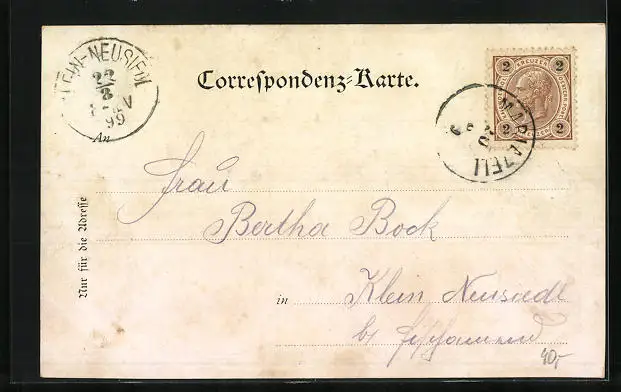 KLEIN-NEUSIEDL
22
8
99
Correspondenz-Karte.
2 KREUZER 2
2 2
MARIAZELL
An
Frau
Bertha Bock
Nur für die Adresse
in Klein Neusiedl
b/ Fischamend
90,-